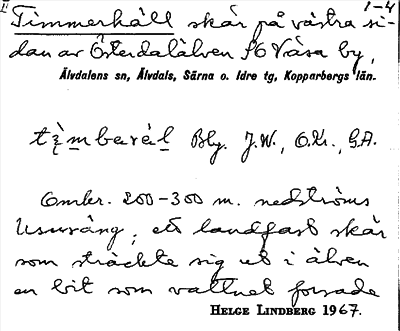 1-4
Timmerhäll skär på västra si-
dan av Österdalälven SO Våsa by,
Älvdalens sn, Älvdals, Särna o. Idre tg, Kopparbergs län.
Bly. J.W., O.Kr., G.A.
Omkr. 200-300 m. nedströms
ett landfast skär
som sträckte sig ut i älven
en bit som vattnet forsade
HELGE LINDBERG 1967.